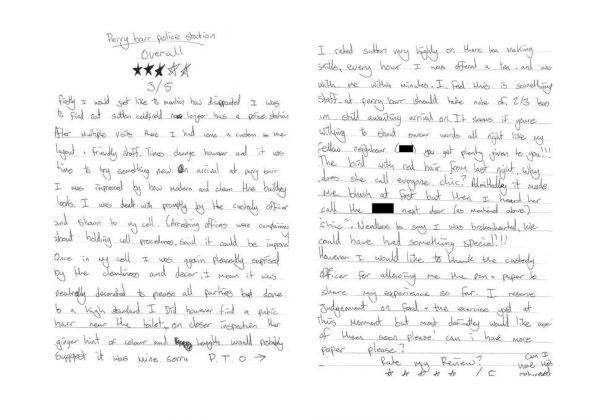 Perry barr police station
Overall
★★★☆☆
3/5
Firstly I would just like to mention how disappointed I was
to find out sutton coldfield no longer has a police station
After multiple visits there I had come a custom to the
layout + friendly staff. Times change however and it was
time to try something new on arrival at perry barr
I was impressed by how modern and clean the building
looks. I was dealt with promptly by the custody officer
and shown to my cell (Arresting officers were complaining
about holding cell procedures, said it could be improved
Once in my cell I was again pleasantly suprised
by the cleanliness and decor. I mean it was
neutrally decorated to please all parties but done
to a high standard I Did however find a pubic
hair near the toilet, on closer inspection the
ginger hint of colour and length would probably
suggest it was mine. sorry P.T.O. →
I rated sutton very highly on there tea making
skills, every hour I was offered a tea and was
with me within minutes. I feel this is something
staff at perry barr should take note of. 2/3 teas
im still awaiting arrival on. It seems if youre
willying to shout swear words all night like my
fellow neighbour ( ) you get plenty given to you!!!
The bird with red hair from last night. Why
does she call everyone chic? Admittedley it made
me blush at first but then I heard her
call the next door (as mentiond above)
"chic". Needless to say I was brokenhearted. We
could have had something special!!!
However I would like to thank the custody
Officer for allowing me the pen + paper to
share my experience so far. I reserve
Judgement on food + the exercise yard at
this moment but most definatley would like use
of them soon please. can i have more
paper please?
Rate my Review?
☆ ☆ ☆ ☆ ☆ /5
Can I
have this